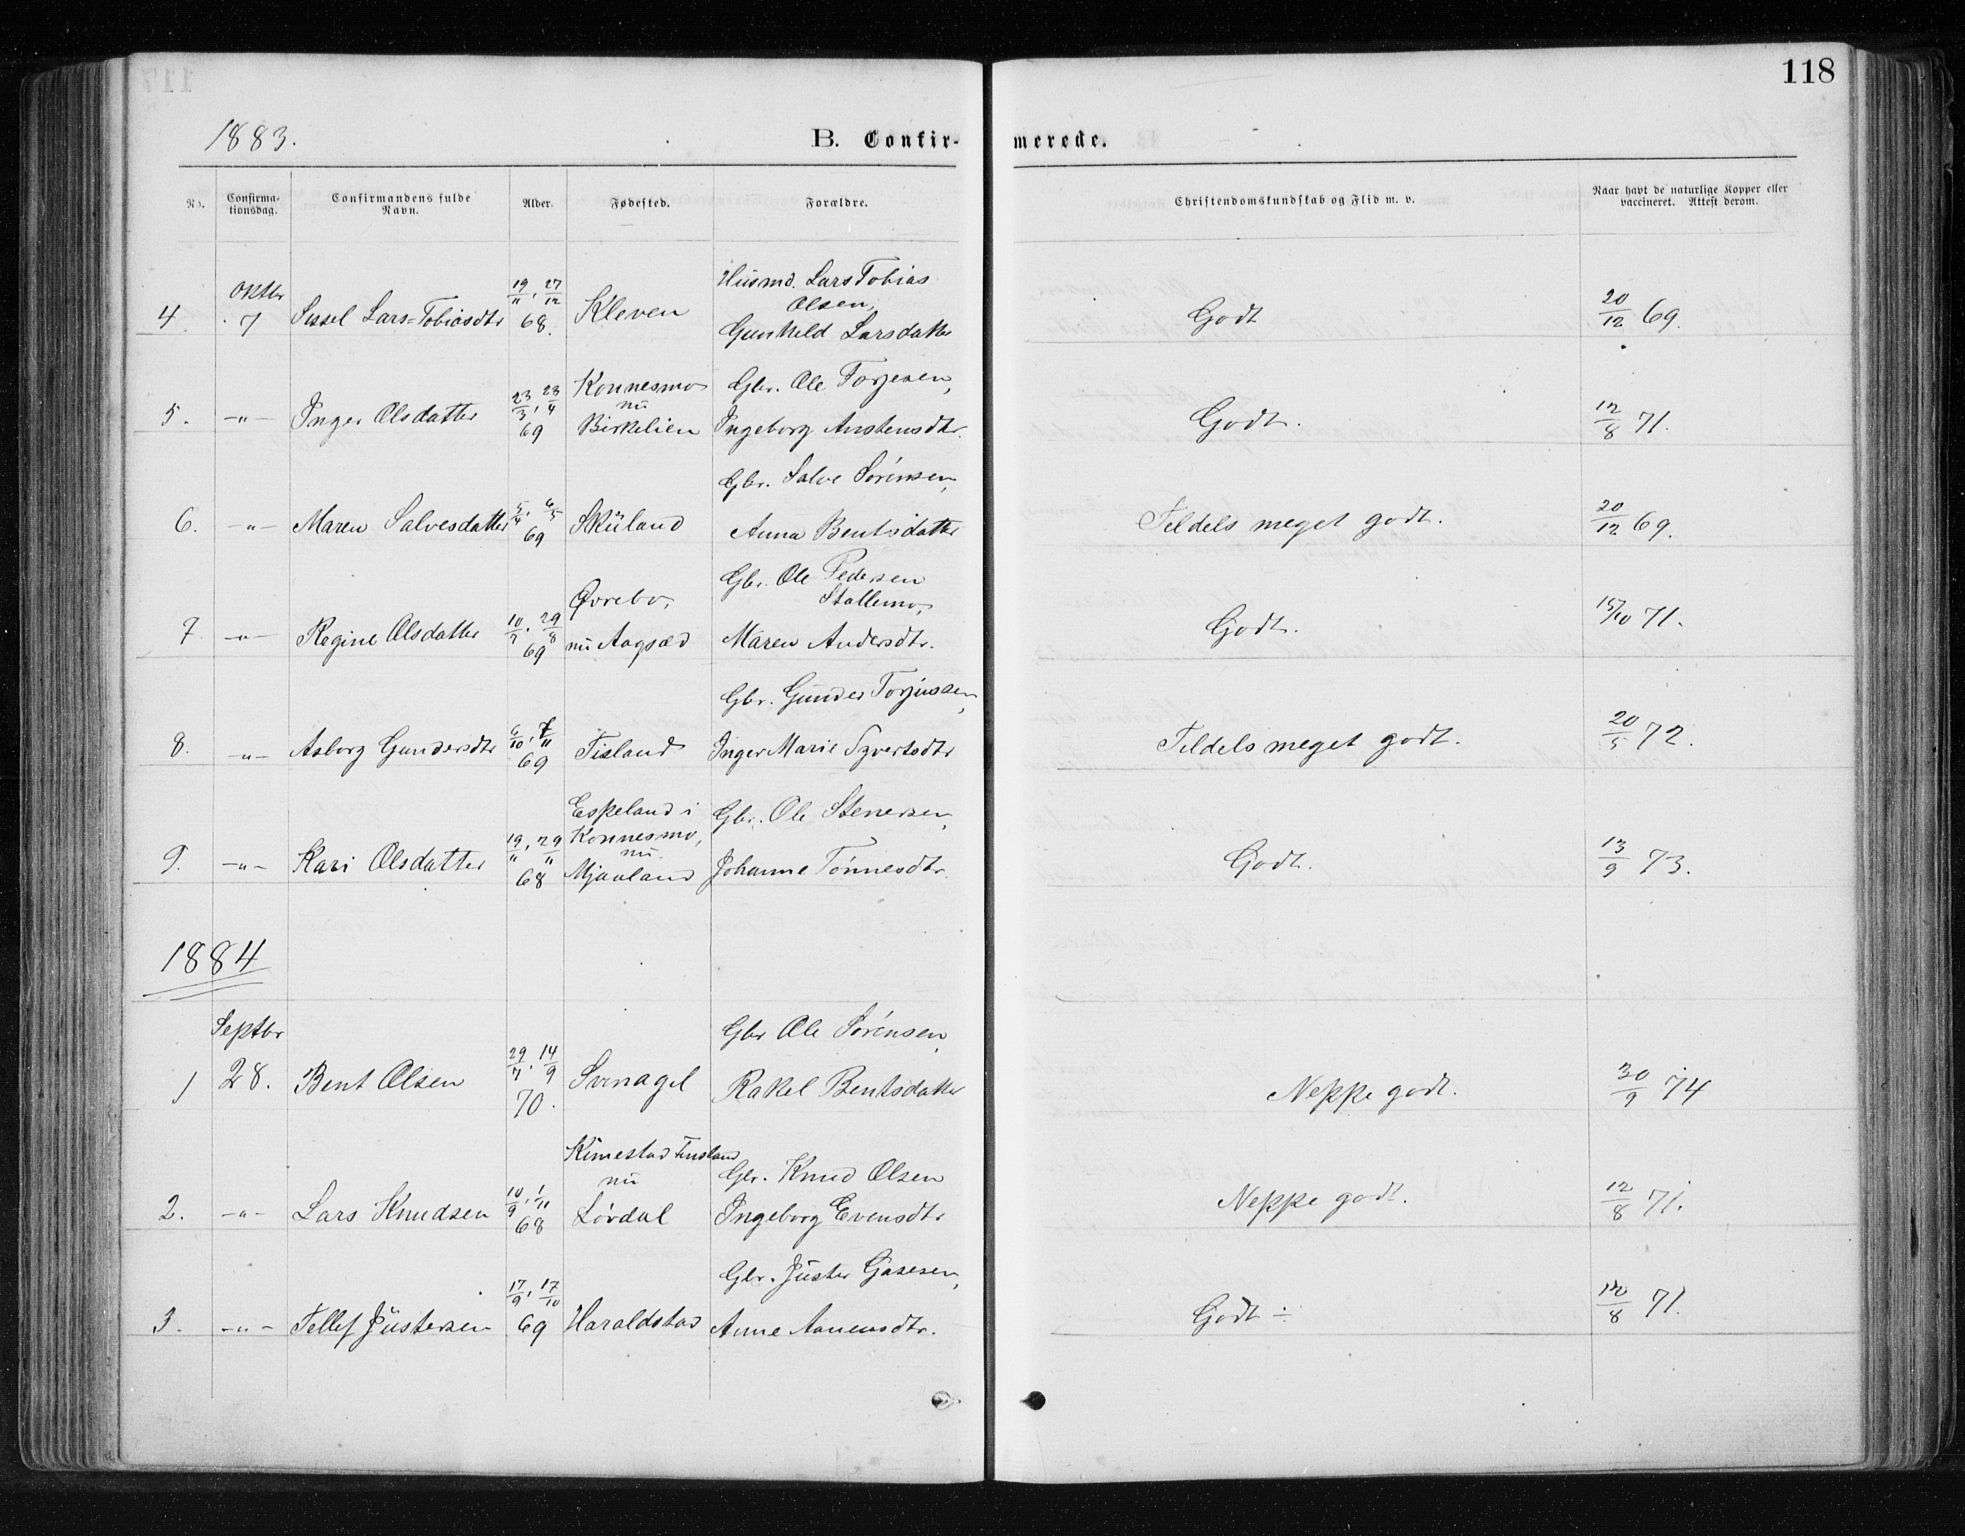 118
1883.
B. Confir-merede.
No.
Confirma-tionsdag.
Confirmandens fulde Navn.
Alder.
Fødested.
Forældre.
Christendomskundskab og Flid m. v.
Naar havt de naturlige Kopper eller vaccineret. Attest derom.
Oktbr
4. 7 Sissel Lars=Tobiasdtr 19/11, 27/12 68. Kleven Husmd. Lars Tobias Olsen, Gunhild Larsdatter Godt 20/12 69.
5. -"- Inger Olsdatter 23/3, 23/4 69 Konnesmo nu Birkelien Gbr. Ole Torjesen, Ingeborg Anstensdtr. Godt. 12/8 71.
6. -"- Maren Salvesdatter 5/4, 6/5 69 Skuland Gbr. Salve Sørensen, Anna Bentsdatter Tildels meget godt. 20/12 69.
7. -"- Regine Olsdatter 10/7, 29/8 69 Øvrebø, nu Aagsæd Gbr. Ole Pedersen Stallemo, Maren Andersdtr. Godt. 15/10 71.
8. -"- Asborg Gundersdtr 6/10, 7/11 69 Tisland Gbr. Gunder Torjussen, Inger Marie Syvertsdtr Tildels meget godt. 20/5 72.
9. -"- Kari Olsdatter 19/11, 29/11 68 Espeland i Konnesmo, nu Mjaaland Gbr. Ole Stenersen, Johanne Tønnesdtr. Godt. 13/9 73.
1884
Septbr
1 28. Bent Olsen 29/7, 14/9 70. Svinagel Gbr Ole Sørensen, Rakel Bentsdatter Neppe godt. 30/9 74
2. -"- Lars Knudsen 10/9, 1/11 68 Kimestad Finsland nu Løvdal Gbr. Knud Olsen Ingeborg Evensdtr Neppe godt. 12/8 71.
3. -"- Tellef Justersen 17/9, 17/10 69 Haraldstad Gbr. Juster Gasesen, Anne Aanensdtr. Godt ÷ 12/8 71.